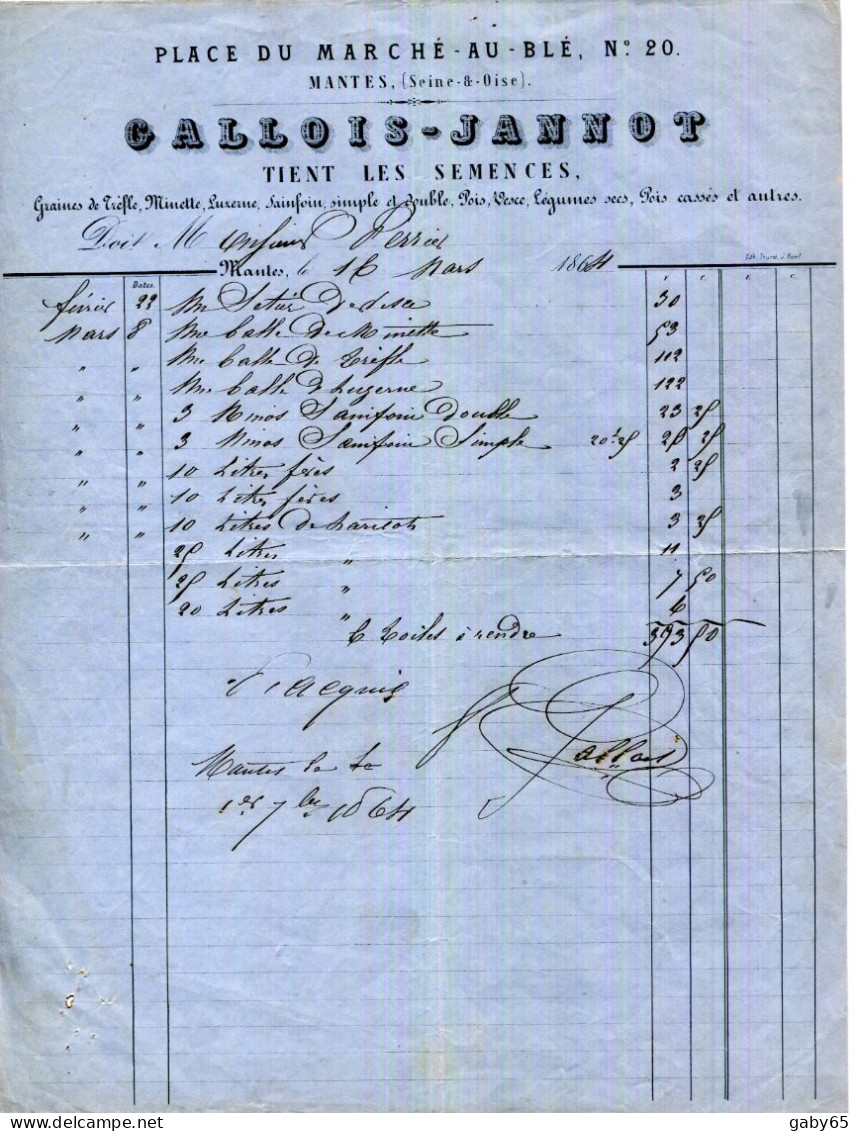 PLACE DU MARCHÉ-AU-BLÉ, N° 20.
MANTES, (Seine-&-Oise).
GALLOIS-JANNOT
TIENT LES SEMENCES,
Graines de Trèfle, Minette, Luzerne, Sainfoin, simple et double, Pois, Vesce, Légumes secs, Pois cassés et autres.
Doit Monsieur Perrier
Mantes, le 16 Mars 1864
Dates.
février 22 Un Setier De 30
Mars 8 Une balle De Minette 53
" " Une balle De Trèfle 112
" " Une balle De Luzerne 122
" " 3 Sainfoin Double 23 25
" " 3 Sainfoin Simple 20f 25 25
" " 10 Litres fèves 2 25
" " 10 Litres fèves 3
" " 10 Litres De haricots 3 25
25 Litres " 11
25 Litres " 7 50
20 Litres " 6
6 Toiles à rendre 393 50
acquis
Gallois
Mantes
1er 7bre 1864
delcampe.net
gaby65